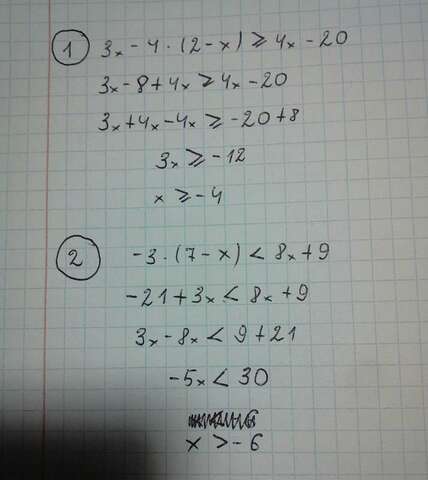 1 3x - 4 · (2 - x) ≥ 4x - 20
3x - 8 + 4x ≥ 4x - 20
3x + 4x - 4x ≥ -20 + 8
3x ≥ -12
x ≥ -4
2 -3 · (7 - x) < 8x + 9
-21 + 3x < 8x + 9
3x - 8x < 9 + 21
-5x < 30
x > -6